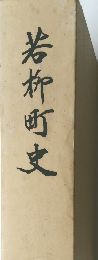 若柳町史